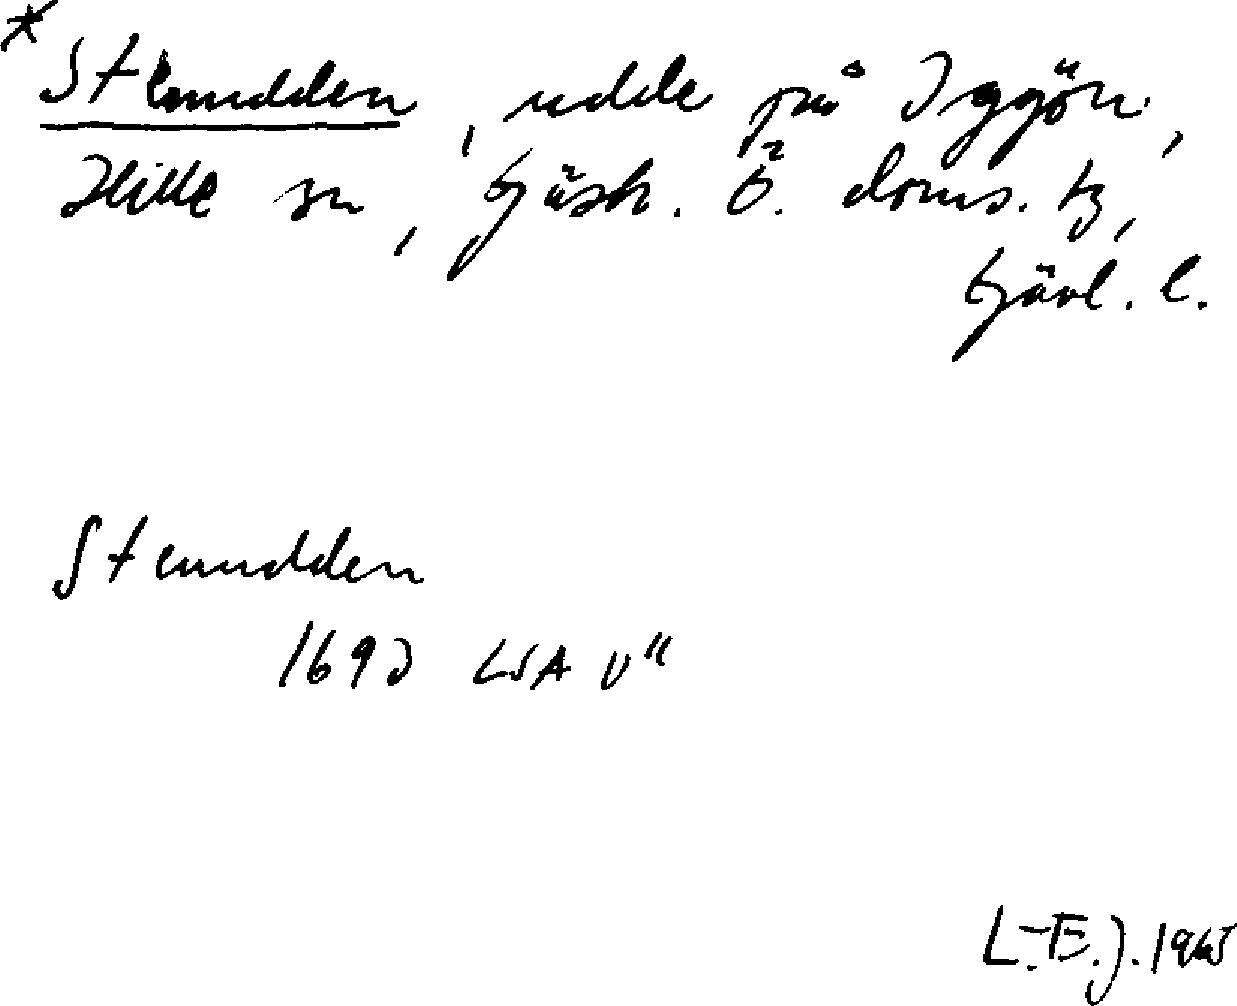 * Stenudden, udde på Iggön,
Hille sn, Gästr. Ö. doms. tg,
Gävl. l.
Stenudden
169 LSA
L.-E. J. 1965